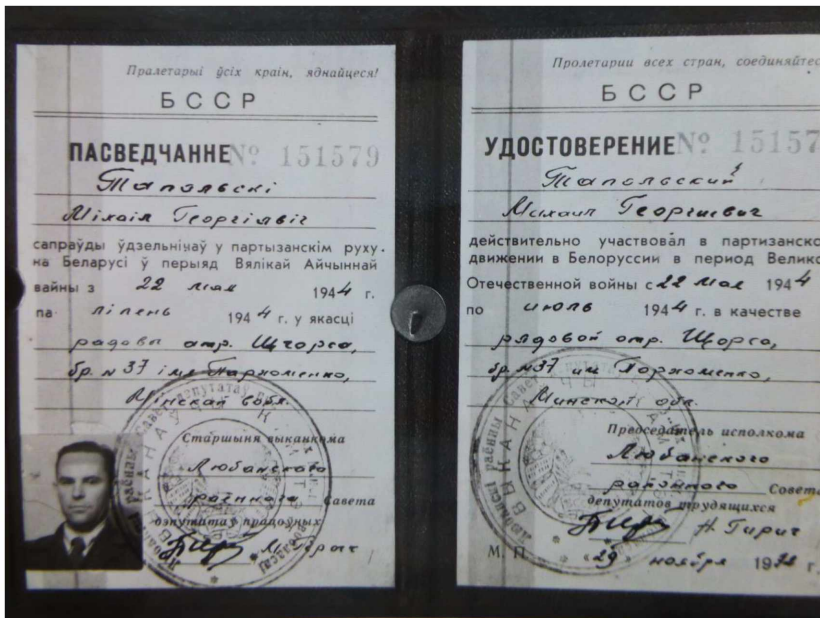 Пралетарыі ўсіх краін, яднайцеся!
БССР
ПАСВЕДЧАННЕ № 151579
Тапольскі
Міхаіл Георгіявіч
сапраўды ўдзельнічаў у партызанскім руху
на Беларусі ў перыяд Вялікай Айчыннай
вайны з 22 мая 1944 г.
па ліпень 1944 г. у якасці
радавы атр. Щчорса,
бр. №37 імя Пархоменко,
Мінскай вобл.
Старшыня выканкома
Любанскага
раённага Савета
дэпутатаў працоўных
Пролетарии всех стран, соединяйтес
БССР
УДОСТОВЕРЕНИЕ № 15157
Тапольский
Михаил Георгиевич
действительно участвовал в партизанско
движении в Белоруссии в период Велико
Отечественной войны с 22 мая 1944
по июль 1944 г. в качестве
рядовой отр. Щорса,
бр. №37 им Пархоменко,
Минской обл.
Председатель исполкома
Любанского
районного Совета
депутатов трудящихся
Н. Гирич
М. П. «29» ноября 19 г.